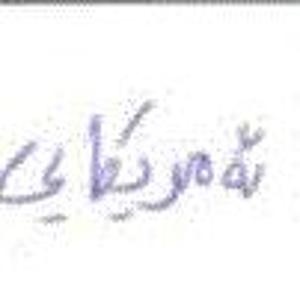 ئەمریکایی